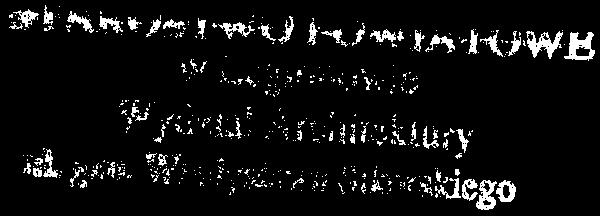 STAROSTWO POWIATOWE
w Legionowie
Wydział Architektury
ul. gen. Władysława Sikorskiego